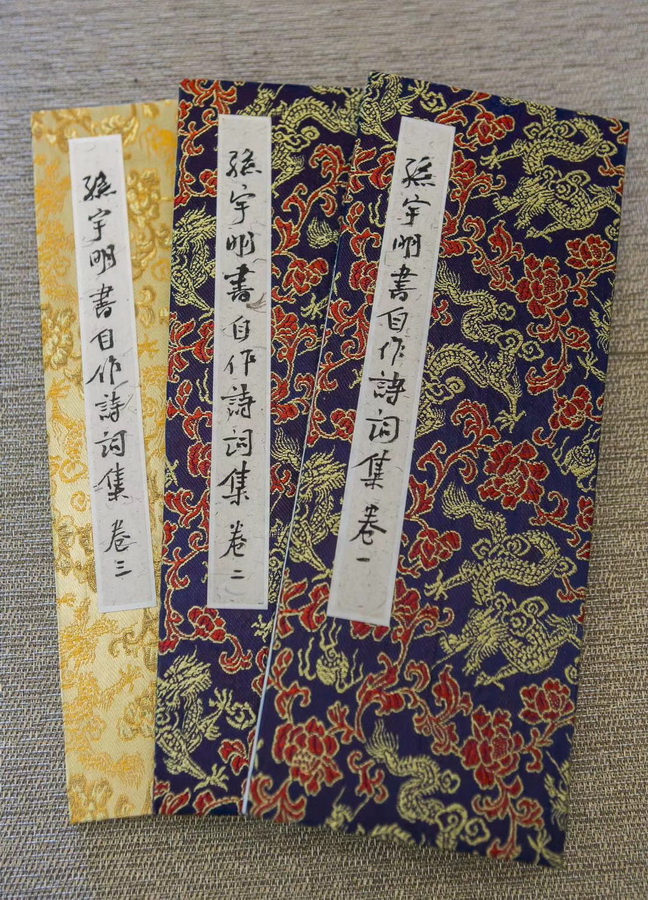 孫宇明書自作詩詞集 卷一
孫宇明書自作詩詞集 卷二
孫宇明書自作詩詞集 卷三